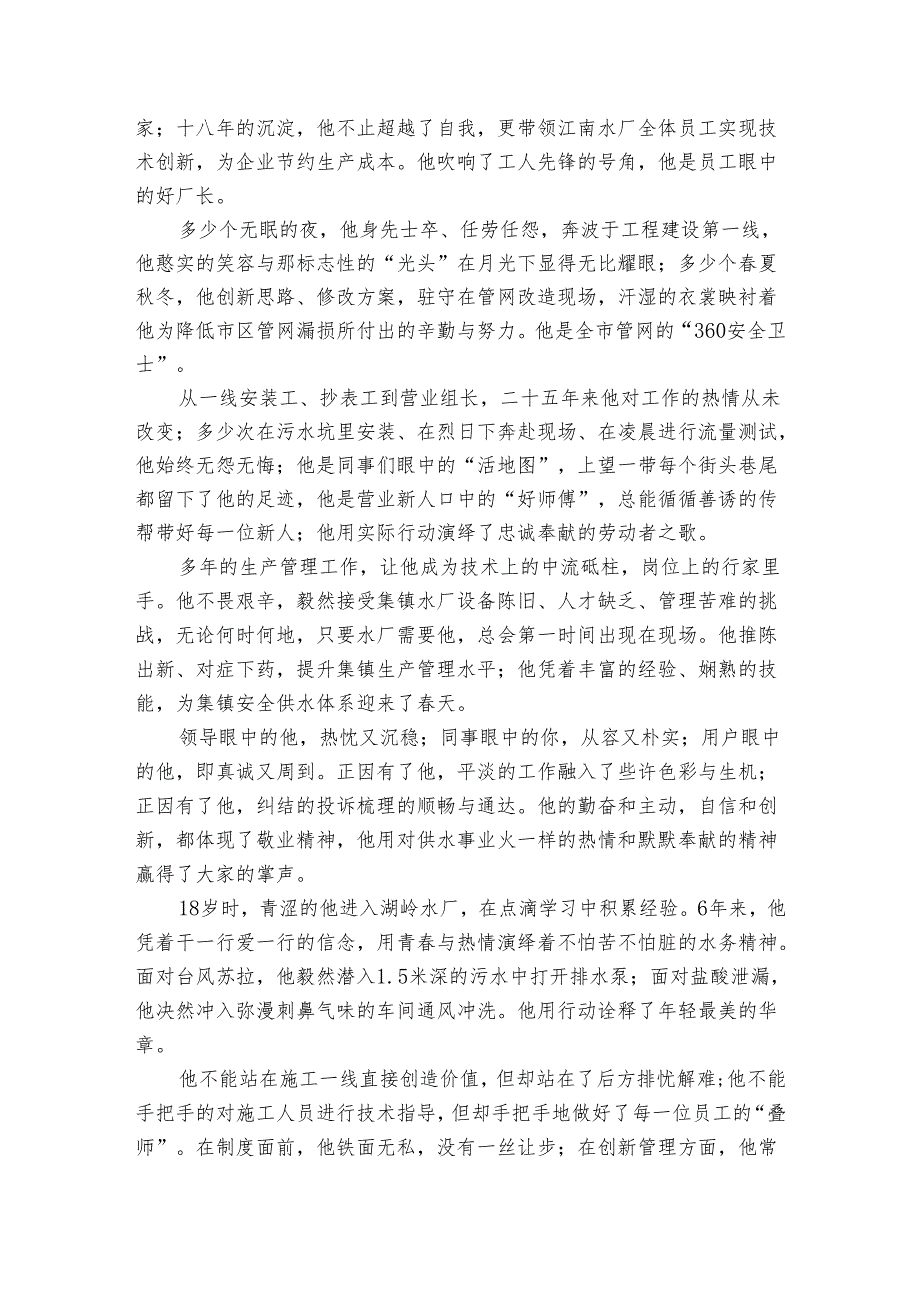 家；十八年的沉淀，他不止超越了自我，更带领江南水厂全体员工实现技
术创新，为企业节约生产成本。他吹响了工人先锋的号角，他是员工眼中
的好厂长。
多少个无眠的夜，他身先士卒、任劳任怨，奔波于工程建设第一线，
他憨实的笑容与那标志性的“光头”在月光下显得无比耀眼；多少个春夏
秋冬，他创新思路、修改方案，驻守在管网改造现场，汗湿的衣裳映衬着
他为降低市区管网漏损所付出的辛勤与努力。他是全市管网的“360安全卫
士”。
从一线安装工、抄表工到营业组长，二十五年来他对工作的热情从未
改变；多少次在污水坑里安装、在烈日下奔赴现场、在凌晨进行流量测试，
他始终无怨无悔；他是同事们眼中的“活地图”，上望一带每个街头巷尾
都留下了他的足迹，他是营业新人口中的“好师傅”，总能循循善诱的传
帮带好每一位新人；他用实际行动演绎了忠诚奉献的劳动者之歌。
多年的生产管理工作，让他成为技术上的中流砥柱，岗位上的行家里
手。他不畏艰辛，毅然接受集镇水厂设备陈旧、人才缺乏、管理苦难的挑
战，无论何时何地，只要水厂需要他，总会第一时间出现在现场。他推陈
出新、对症下药，提升集镇生产管理水平；他凭着丰富的经验、娴熟的技
能，为集镇安全供水体系迎来了春天。
领导眼中的他，热忱又沉稳；同事眼中的你，从容又朴实；用户眼中
的他，即真诚又周到。正因有了他，平淡的工作融入了些许色彩与生机；
正因有了他，纠结的投诉梳理的顺畅与通达。他的勤奋和主动，自信和创
新，都体现了敬业精神，他用对供水事业火一样的热情和默默奉献的精神
赢得了大家的掌声。
18岁时，青涩的他进入湖岭水厂，在点滴学习中积累经验。6年来，他
凭着干一行爱一行的信念，用青春与热情演绎着不怕苦不怕脏的水务精神。
面对台风苏拉，他毅然潜入1.5米深的污水中打开排水泵；面对盐酸泄漏，
他决然冲入弥漫刺鼻气味的车间通风冲洗。他用行动诠释了年轻最美的华
章。
他不能站在施工一线直接创造价值，但却站在了后方排忧解难;他不能
手把手的对施工人员进行技术指导，但却手把手地做好了每一位员工的“叠
师”。在制度面前，他铁面无私，没有一丝让步；在创新管理方面，他常